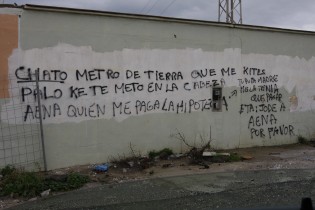 CHATO METRO DE TIERRA QUE ME KITES
PALO KE TE METO EN LA CABEZA
AENA QUIEN ME PAGA LA HIPOTECA
TU MADRE
QUE PAGUE
ETA: JODE A
AENA
POR FAVOR